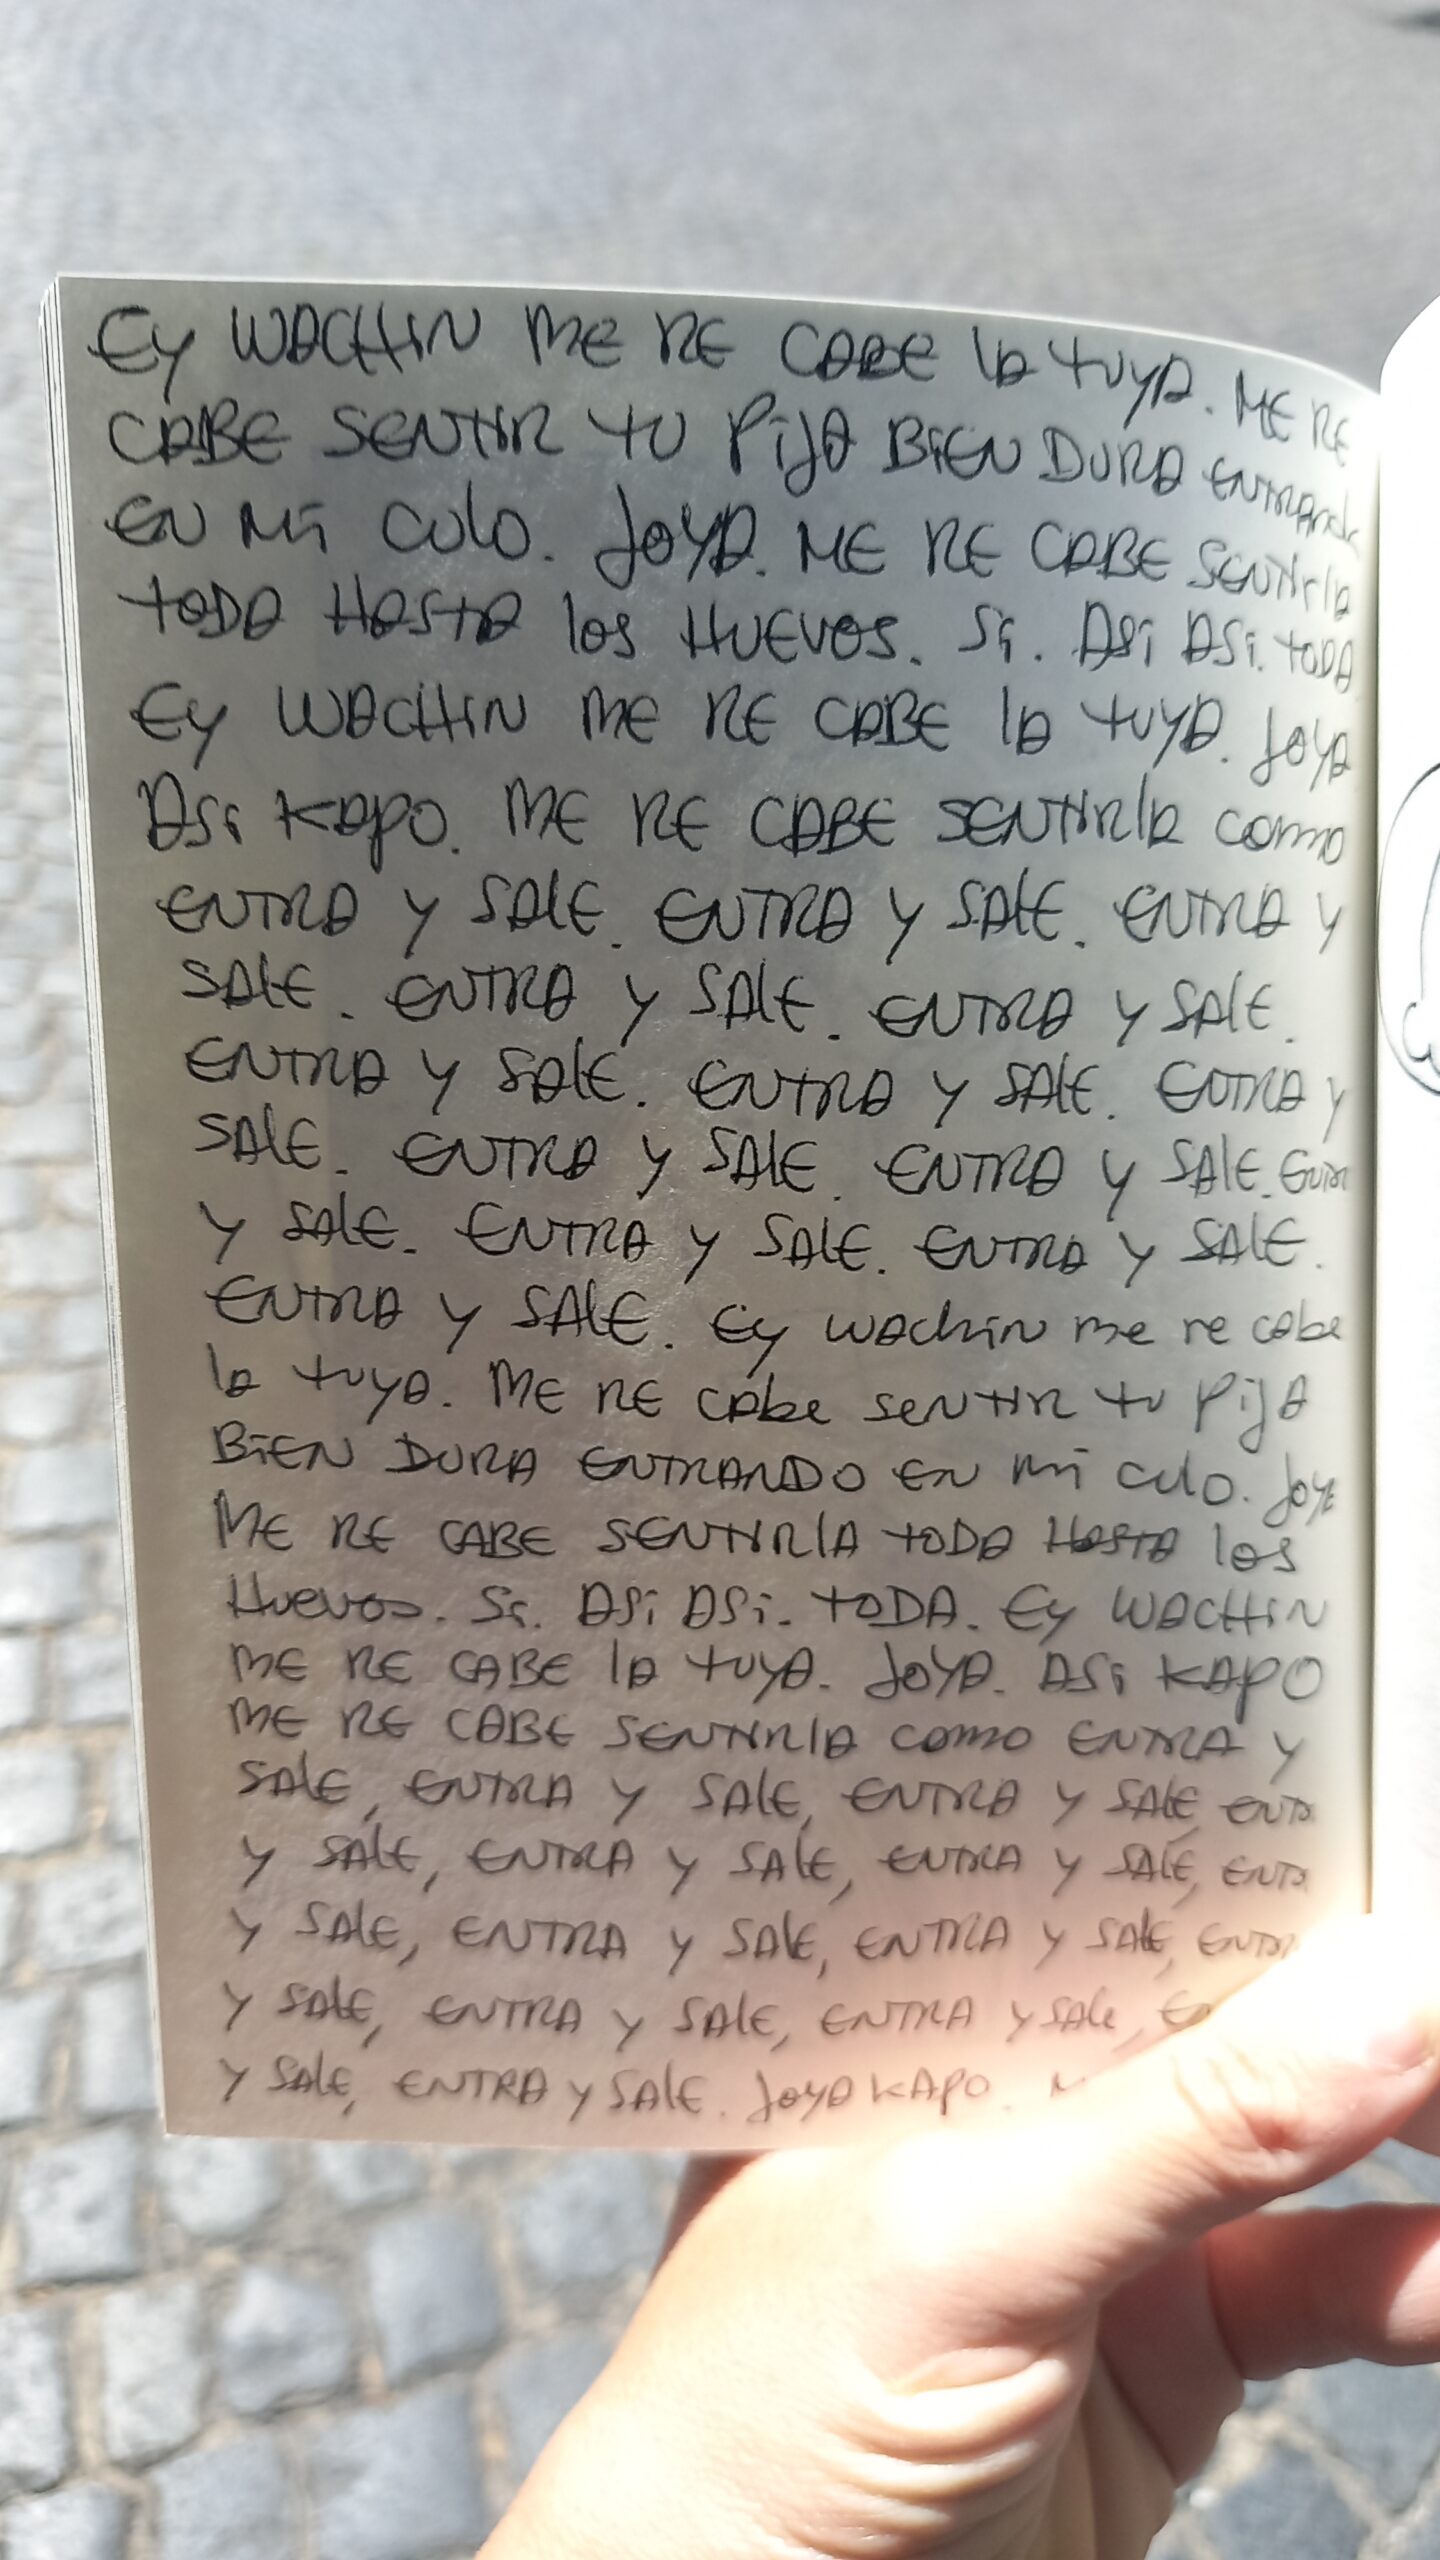 Ey WACHIN ME RE CABE la tuya. ME RE
CABE SENTIR tu Pija BiEN DURA ENTRANdo
EN Mi culo. JOYA. ME RE CABE SENTIRla
toDA HASTA los HUEVOS. Si. Asi Asi. toDA
Ey WACHIN ME RE CABE la tuyA. JOYA
Asi KApO. ME RE CABE SENTIRla como
ENTRA y SAlE. ENTRA y SAlE. ENTRA y
SAlE. ENTRA y SAlE. ENTRA y SAlE.
ENTRA y SAlE. ENTRA y SAlE. ENTRA y
SAlE. ENTRA y SAlE. ENTRA y SAlE. ENTRA
y SAlE. ENTRA y SAlE. ENTRA y SAlE.
ENTRA y SAlE. Ey wachin me re cabe
la tuya. ME RE cabe sentir tu PijA
BiEN DURA ENTRANDO EN mi culo. JOYA
ME RE CABE SENTIRlA toDA HASTA los
Huevos. Si. ASi ASi. toDA. Ey WACHIN
ME RE CABE la tuyA. JoyA. ASi KApO
ME RE CABE SENTIRlA como ENTRA y
SAlE, ENTRA y SAlE, ENTRA y SAlE, ENTR
y SAlE, ENTRA y SAlE, ENTRA y SAlE, ENTR
y SAlE, ENTRA y SAlE, ENTRA y SAlE, ENTR
y SAlE, ENTRA y SAlE, ENTRA y SAle,
y SAlE, ENTRA y SAlE. JoyA KApo.